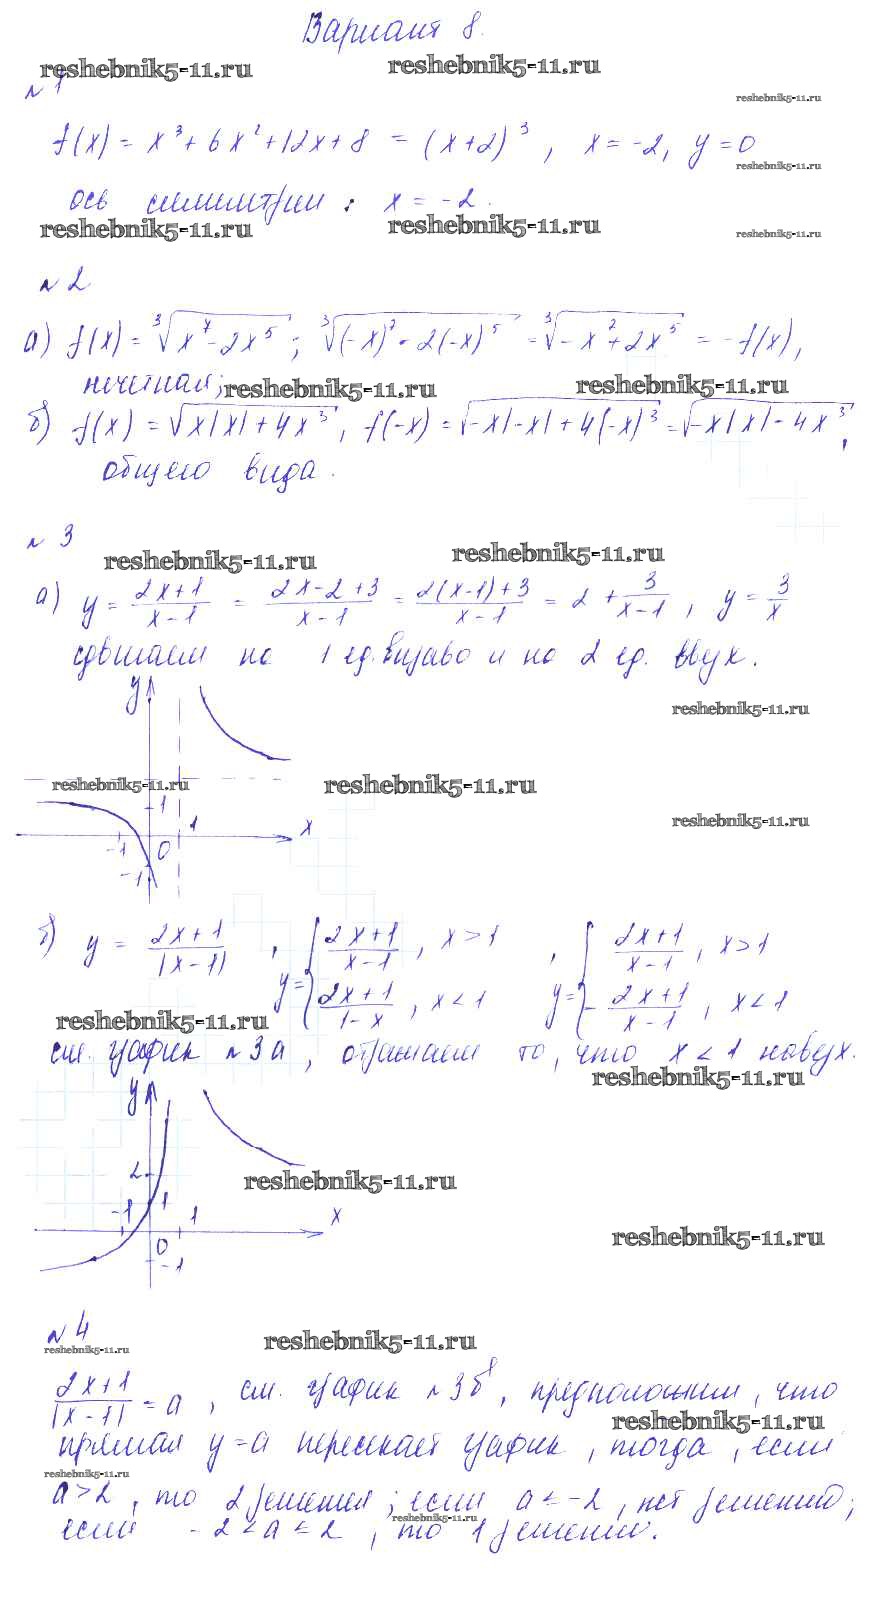 Вариант 8.
reshebnik5-11.ru reshebnik5-11.ru
№ 1
reshebnik5-11.ru
f(x) = x³ + 6x² + 12x + 8 = (x+2)³, x = -2, y = 0
reshebnik5-11.ru
ось симметрии: x = -2.
reshebnik5-11.ru reshebnik5-11.ru reshebnik5-11.ru
№ 2
а) f(x) = ∛(x⁷ - 2x⁵); ∛((-x)⁷ - 2(-x)⁵) = ∛(-x⁷ + 2x⁵) = -f(x),
нечетная; reshebnik5-11.ru reshebnik5-11.ru
б) f(x) = √(x|x| + 4x³), f(-x) = √(-x|-x| + 4(-x)³) = √(-x|x| - 4x³),
общего вида.
№ 3
reshebnik5-11.ru reshebnik5-11.ru
а) y = (2x+1)/(x-1) = (2x-2+3)/(x-1) = (2(x-1)+3)/(x-1) = 2 + 3/(x-1), y = 3/x
сдвигаем на 1 ед. вправо и на 2 ед. вверх.
y
reshebnik5-11.ru
reshebnik5-11.ru reshebnik5-11.ru
1
1 x reshebnik5-11.ru
-1 0
-1
б) y = (2x+1)/|x-1|, y = { (2x+1)/(x-1), x > 1; (2x+1)/(1-x), x < 1, y = { (2x+1)/(x-1), x > 1; -(2x+1)/(x-1), x < 1
reshebnik5-11.ru
см. график №3а, отражаем то, что x < 1 наверх.
reshebnik5-11.ru
y
2 reshebnik5-11.ru
-1 1 1 x
reshebnik5-11.ru
0 -1
№ 4
reshebnik5-11.ru reshebnik5-11.ru
(2x+1)/|x-1| = a, см. график №3б, предположим, что
reshebnik5-11.ru
прямая y = a пересекает график, тогда, если
reshebnik5-11.ru
a > 2, то 2 решения; если a ≤ -2, нет решений;
reshebnik5-11.ru
если -2 < a ≤ 2, то 1 решений.